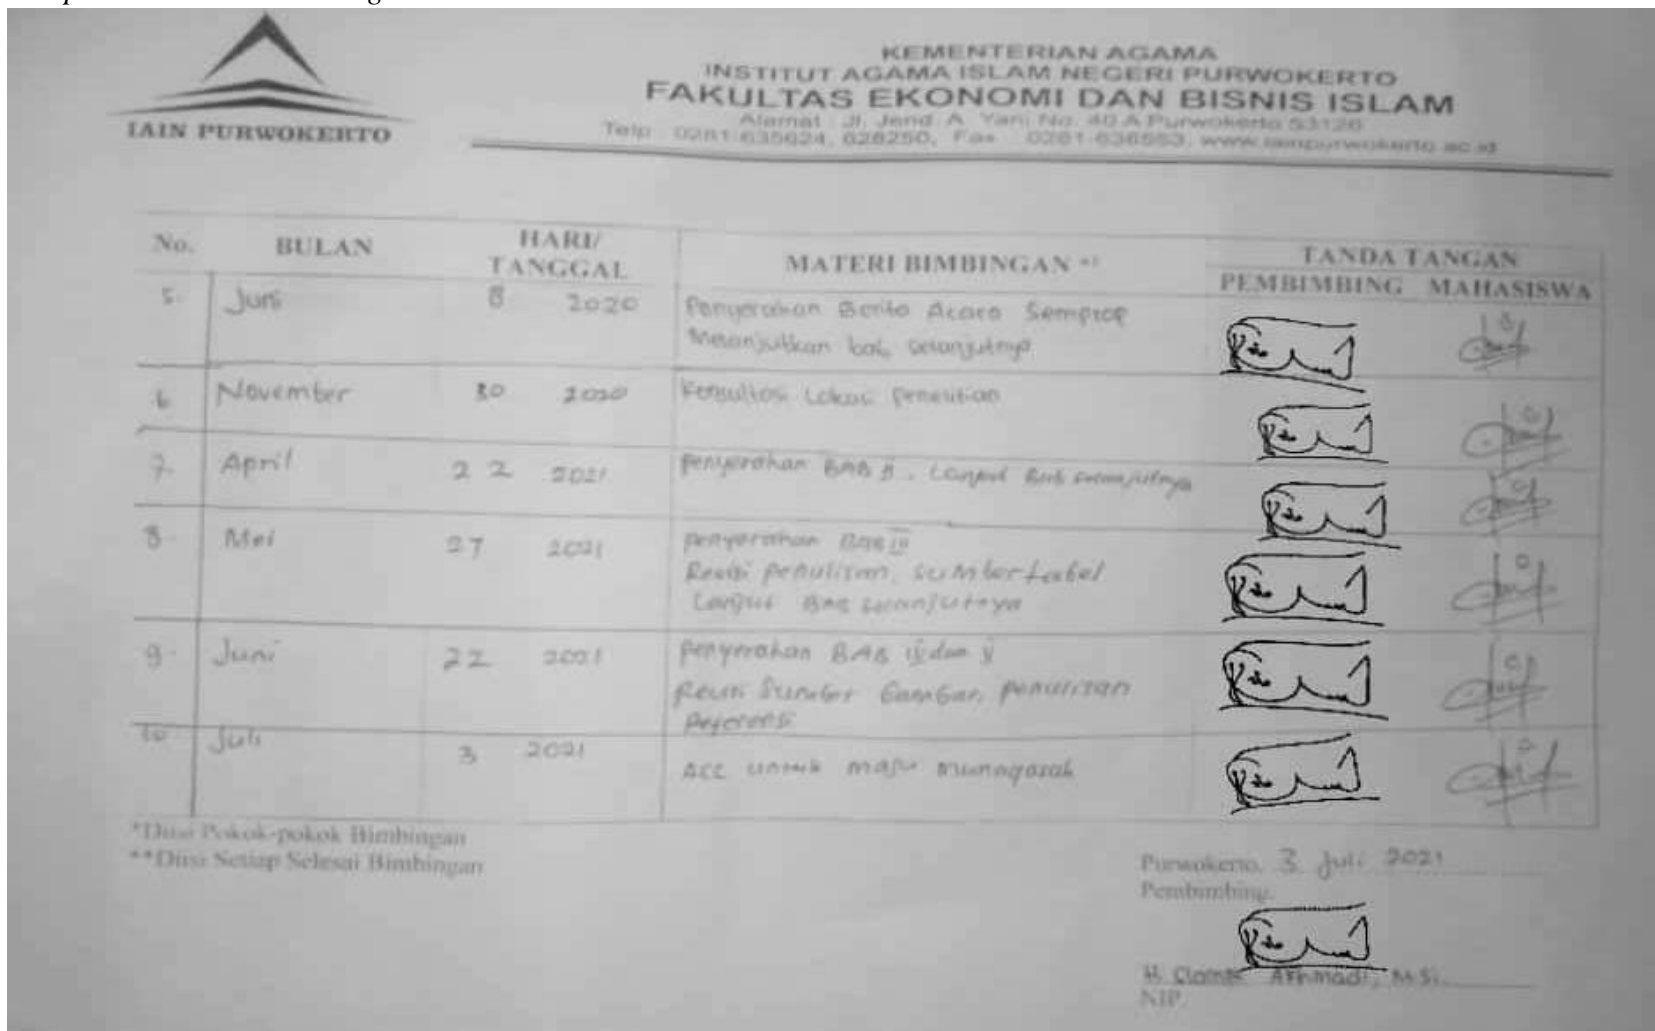 IAIN PURWOKERTO
KEMENTERIAN AGAMA
INSTITUT AGAMA ISLAM NEGERI PURWOKERTO
FAKULTAS EKONOMI DAN BISNIS ISLAM
Alamat : Jl. Jend. A. Yani No. 40 A Purwokerto 53126
Telp : 0281-635624, 628250, Fax : 0281-636553, www.iainpurwokerto.ac.id
No. BULAN HARI/ TANGGAL MATERI BIMBINGAN TANDA TANGAN
PEMBIMBING MAHASISWA
5. Juni 8 2020 Penyerahan Berita Acara Sempro
Melanjutkan bab selanjutnya
6. November 30 2020 Konsultasi Lokasi Penelitian
7. April 22 2021 Penyerahan BAB II. Lanjut Bab selanjutnya
8. Mei 27 2021 Penyerahan BAB III
Revisi Penulisan, sumber tabel
Lanjut BAB selanjutnya
9. Juni 22 2021 Penyerahan BAB IV dan V
Revisi Sumber Gambar, Penulisan
Referensi
10. Juli 3 2021 Acc untuk maju munaqasah
*Diisi Pokok-pokok Bimbingan
**Diisi Setiap Selesai Bimbingan
Purwokerto, 3 Juli 2021
Pembimbing,
H. Akhmadi, M.Si.
NIP.